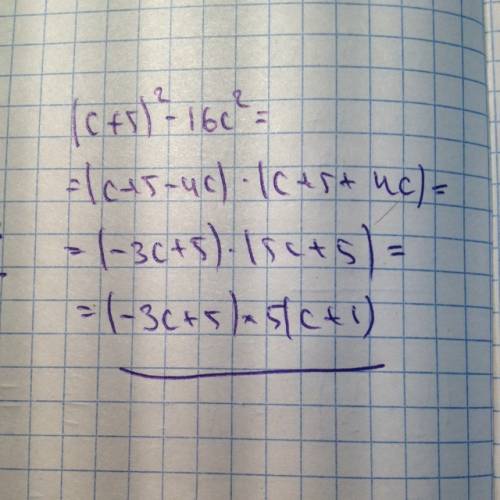 (c+5)²-16c²=
=(c+5-4c)·(c+5+4c)=
=(-3c+5)·(5c+5)=
=(-3c+5)×5(c+1)